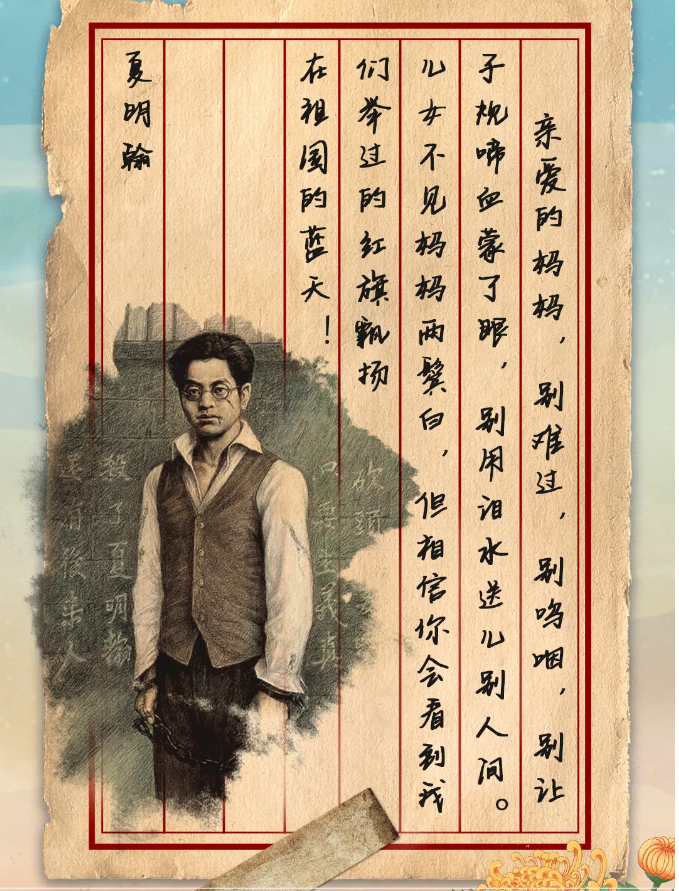 亲爱的妈妈，别难过，别呜咽，别让
子规啼血蒙了眼，别用泪水送儿别人间。
儿女不见妈妈两鬓白，但相信你会看到我
们举过的红旗飘扬
在祖国的蓝天！
夏明翰
砍頭
只要主義真
殺了夏明翰
還有後來人